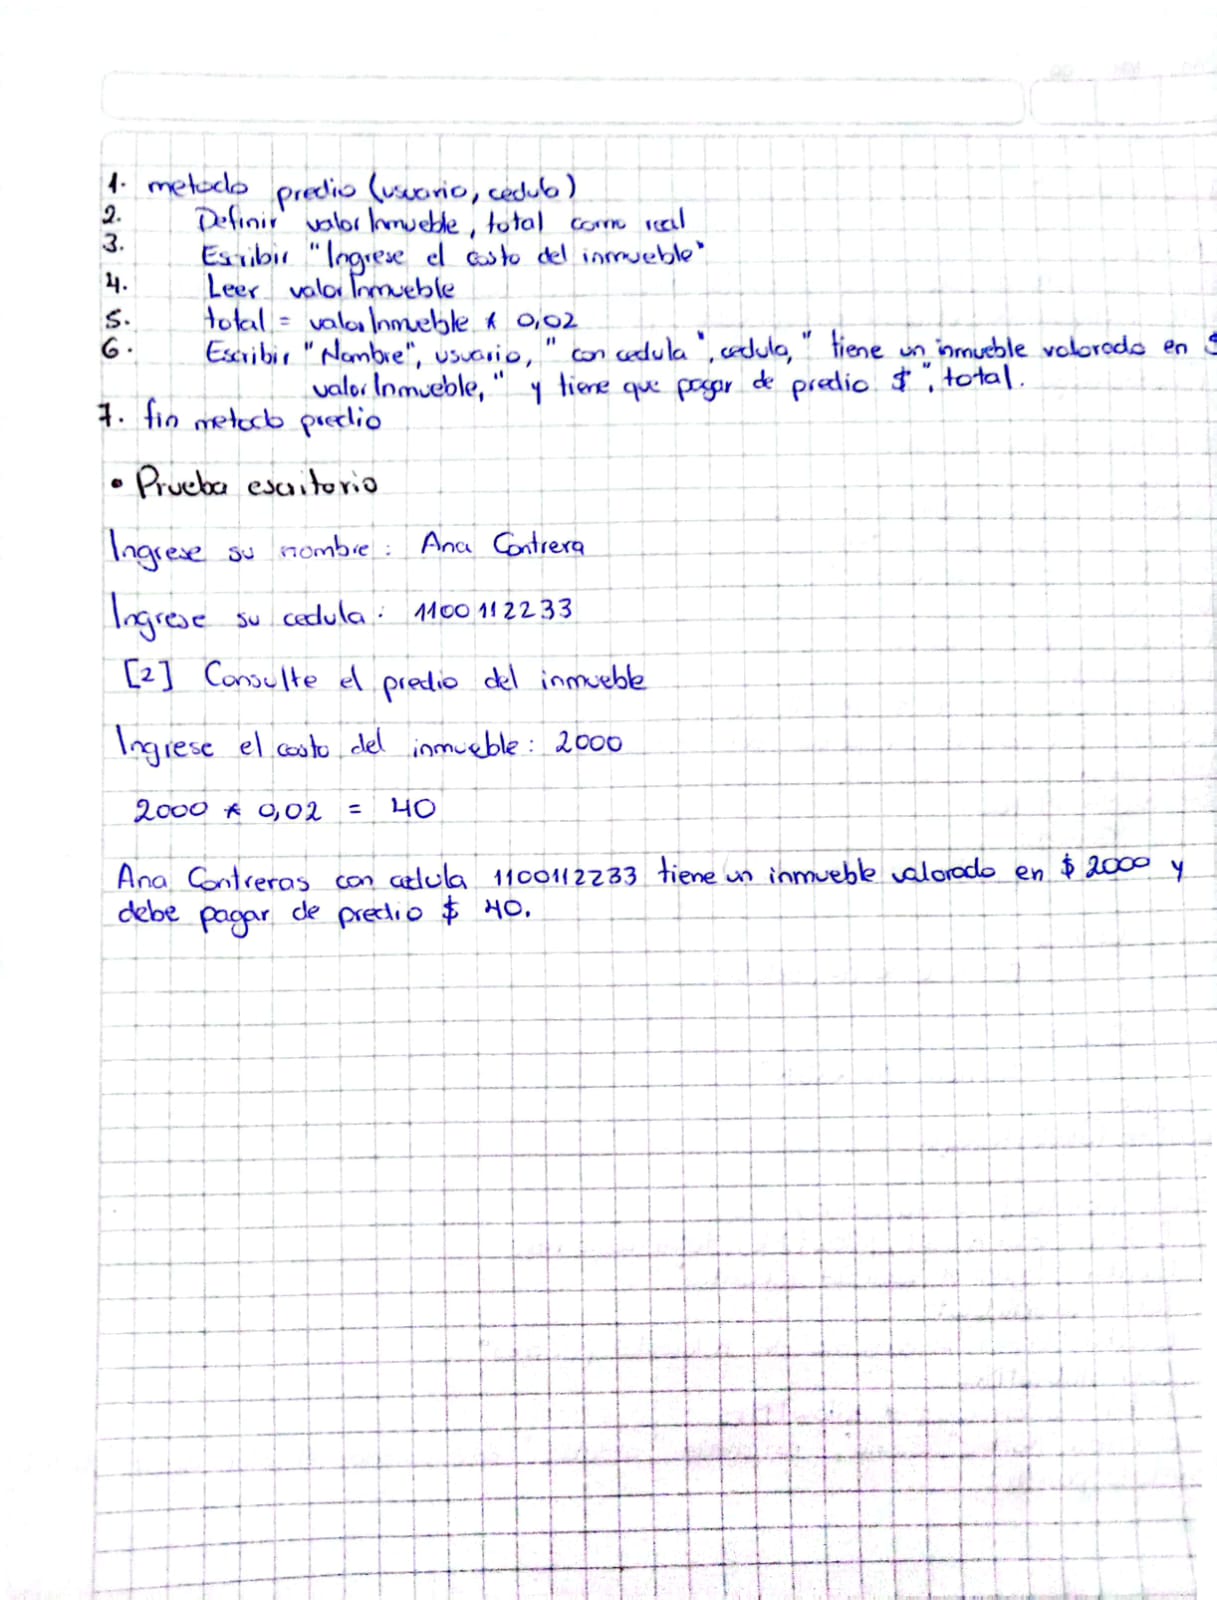 1. metodo predio (usuario, cedula)
2. Definir valorInmueble, total como real
3. Escribir "Ingrese el costo del inmueble"
4. Leer valorInmueble
5. total = valorInmueble * 0,02
6. Escribir "Nombre", usuario, " con cedula ", cedula, " tiene un inmueble valorado en $
valorInmueble, " y tiene que pagar de predio $ ", total.
7. fin metodo predio
• Prueba escritorio
Ingrese su nombre: Ana Contrera
Ingrese su cedula: 1100112233
[2] Consulte el predio del inmueble
Ingrese el costo del inmueble: 2000
2000 * 0,02 = 40
Ana Contreras con cedula 1100112233 tiene un inmueble valorado en $ 2000 y
debe pagar de predio $ 40.